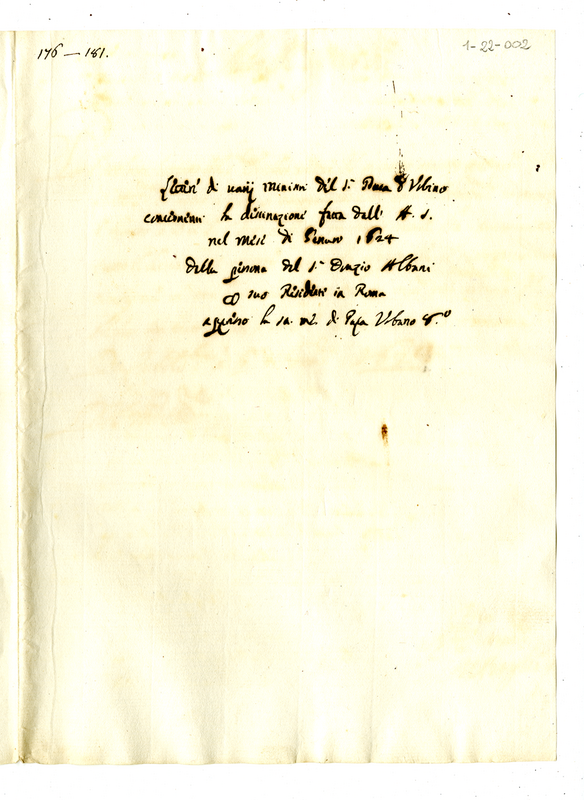 176 — 181.
1-22-002
di varij ministri del s.r Duca d'Urbino
concernenti la destinazione fatta dall' A. S.
nel mese di Genaro 1624
della persona del s.r Orazio Albani
suo Residente in Roma
appresso la sa. me. di Papa Urbano 8.o